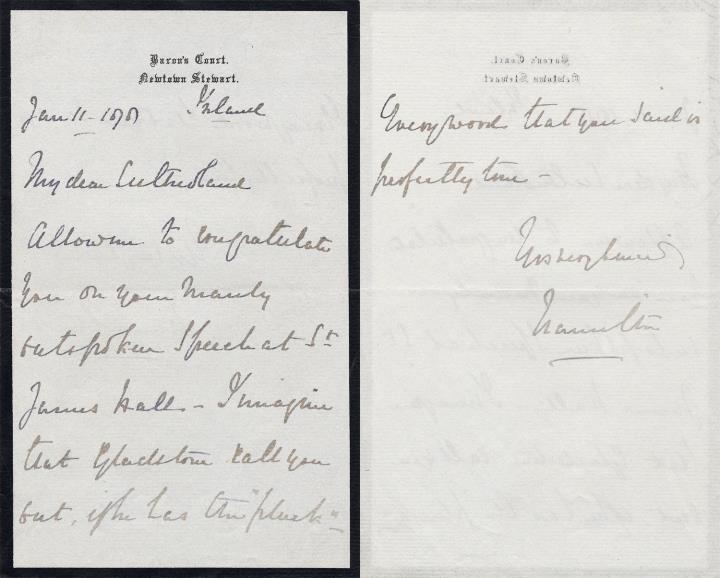 Baron's Court.
Newtown Stewart.
Ireland
Jan 11 - 1878
My dear Sutherland
Allow me to congratulate
you on your manly
outspoken Speech at St
James Hall - I imagine
that Gladstone call you
out, if he has the "pluck" -
Every word that you said is
perfectly true -
Hamilton